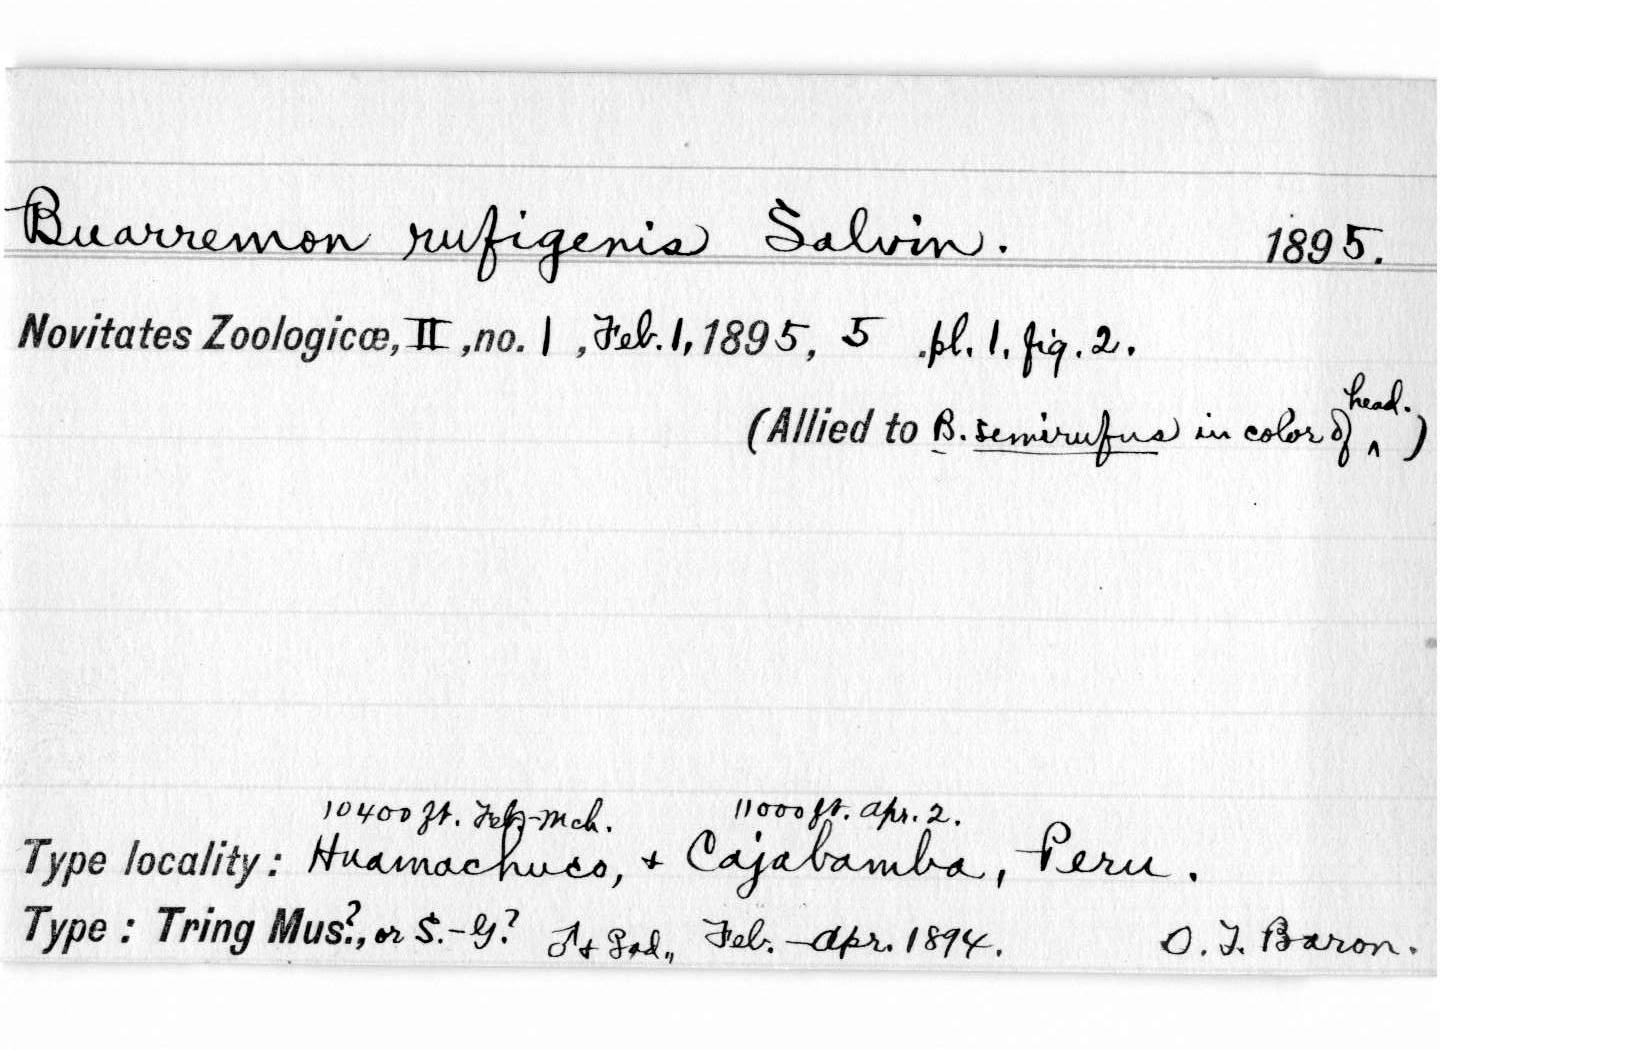 Buarremon rufigenis Salvin. 1895.
Novitates Zoologicæ, II, no. 1, Feb. 1, 1895, 5 .pl. 1, fig. 2.
(Allied to B. semirufus in color of ^ head.)
10400 ft. Feb-Mch. 11000 ft. Apr. 2.
Type locality: Huamachuco, + Cajabamba, Peru.
Type: Tring Mus.?, or S.-G? ♂ + ♀ ad., Feb. - Apr. 1894. O. T. Baron.